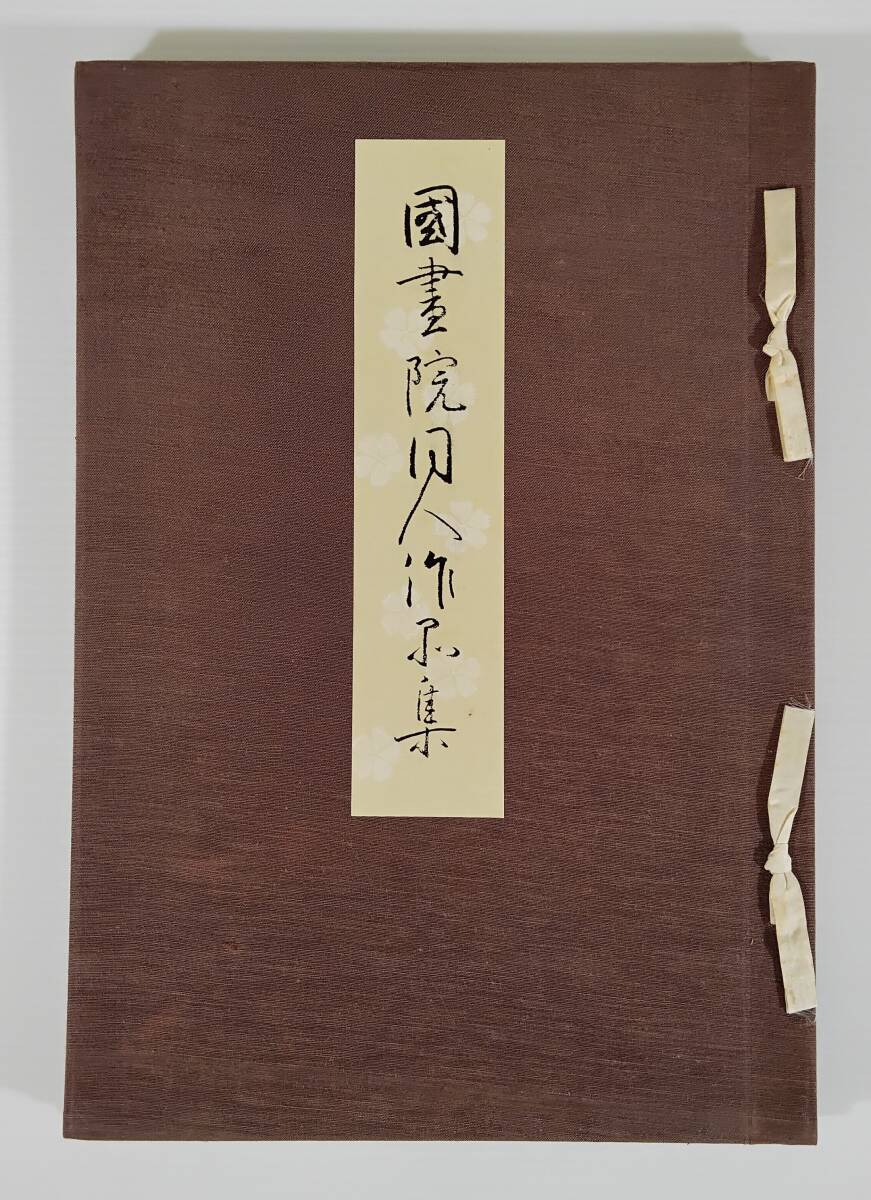 國畫院同人作品集